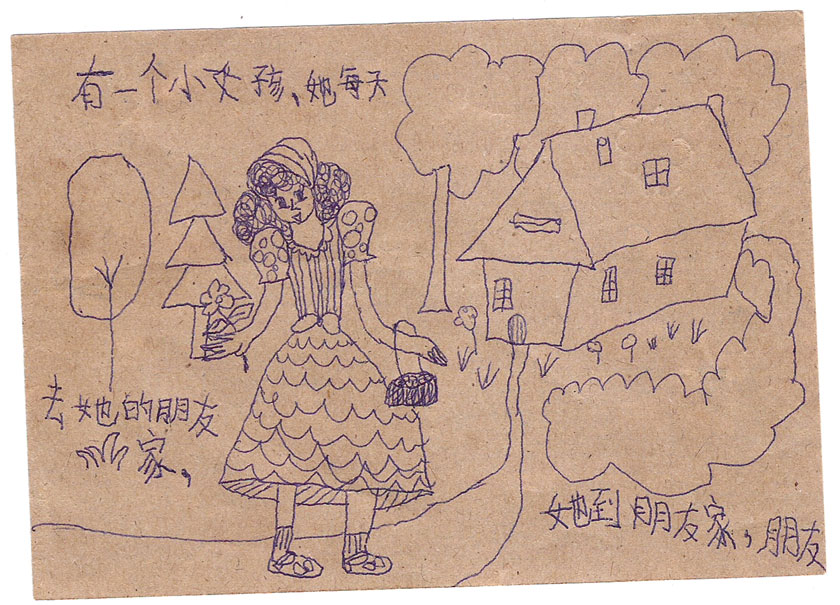 有一个小女孩、她每天
去她的朋友
家,
她到朋友家,朋友